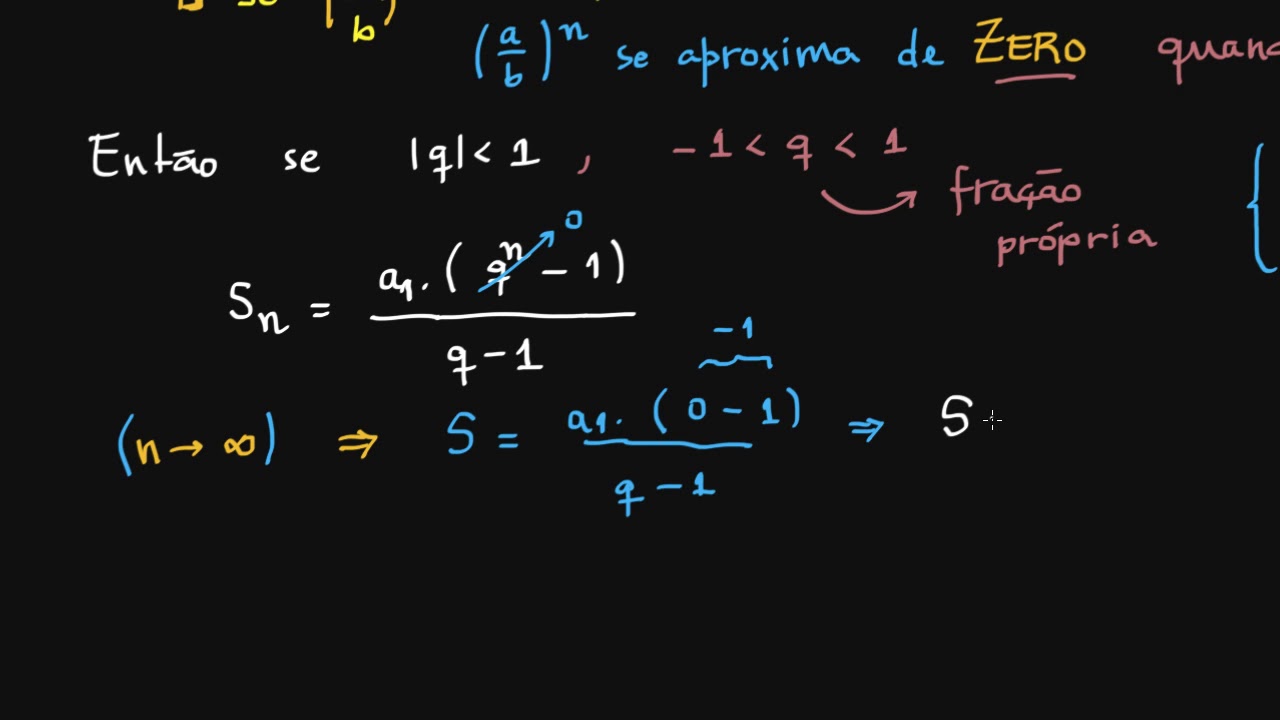 b
(a/b)^n se aproxima de ZERO
Então se |q| < 1 , -1 < q < 1
fração
própria
0
Sn = a1.(q^n - 1) / q - 1
-1
(n → ∞) ⇒ S = a1.(0 - 1) / q - 1 ⇒ S